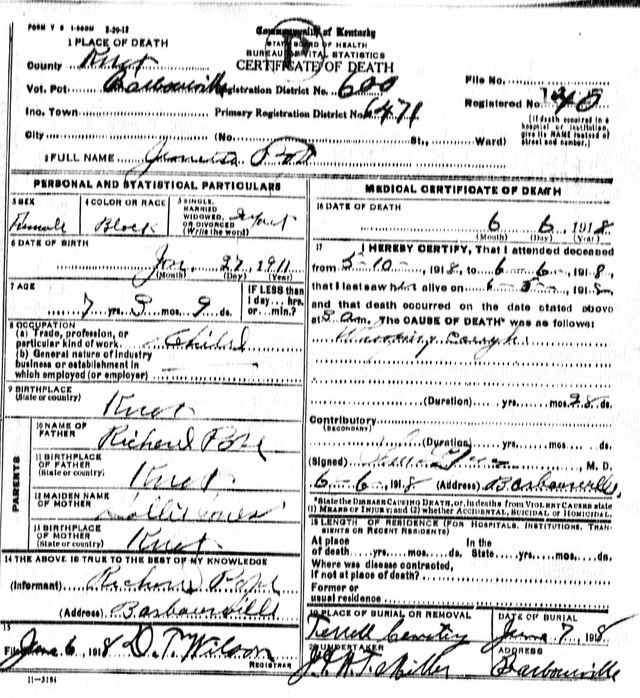 FORM V S 1-500M 2-29-12
Commonwealth of Kentucky
STATE BOARD OF HEALTH
BUREAU OF VITAL STATISTICS
CERTIFICATE OF DEATH
1 PLACE OF DEATH
County Knox
Vot. Pct. Barbourville Registration District No. 600
File No.
Ino. Town Primary Registration District No. 6471
Registered No. 40
City (No. St., Ward)
[If death occurred in a hospital or institution, give its NAME instead of street and number.]
2 FULL NAME
PERSONAL AND STATISTICAL PARTICULARS
3 SEX Female
4 COLOR OR RACE Black
5 SINGLE, MARRIED WIDOWED, OR DIVORCED (Write the word)
6 DATE OF BIRTH
Jan 27, 1911
(Month) (Day) (Year)
7 AGE
7 yrs. 3 mos. 9 ds.
IF LESS than 1 day... hrs. or ... min.?
8 OCCUPATION
(a) Trade, profession, or particular kind of work Child
(b) General nature of industry business or establishment in which employed (or employer)
9 BIRTHPLACE (State or country)
Knox
PARENTS
10 NAME OF FATHER
Richard
11 BIRTHPLACE OF FATHER (State or country)
Knox
12 MAIDEN NAME OF MOTHER
13 BIRTHPLACE OF MOTHER (State or country)
Knox
14 THE ABOVE IS TRUE TO THE BEST OF MY KNOWLEDGE
(Informant) Richard
(Address) Barbourville
15
Filed June 6, 1918 D. T. Wilson
REGISTRAR
11-3184
MEDICAL CERTIFICATE OF DEATH
16 DATE OF DEATH
6 6, 1918
(Month) (Day) (Year)
17 I HEREBY CERTIFY, That I attended deceased
from 5-10-, 1918, to 6-6-, 1918,
that I last saw her alive on 6-5-, 1918
and that death occurred on the date stated above
at 3 am. The CAUSE OF DEATH* was as follows:
Whooping Cough
(Duration) yrs. mos. 28 ds.
Contributory (SECONDARY)
(Duration) yrs. mos. ds.
(Signed) , M. D.
6-6-, 1918 (Address) Barbourville,
*State the DISEASE CAUSING DEATH, or, in deaths from VIOLENT CAUSES state (1) MEANS OF INJURY; and (2) whether ACCIDENTAL, SUICIDAL or HOMICIDAL.
18 LENGTH OF RESIDENCE (FOR HOSPITALS, INSTITUTIONS, TRANSIENTS OR RECENT RESIDENTS)
At place of death yrs. mos. ds. In the State yrs. mos. ds.
Where was disease contracted, if not at place of death?
Former or usual residence
19 PLACE OF BURIAL OR REMOVAL
Terrell Cemetery
DATE OF BURIAL
June 7, 1918
20 UNDERTAKER
Miller
ADDRESS
Barbourville